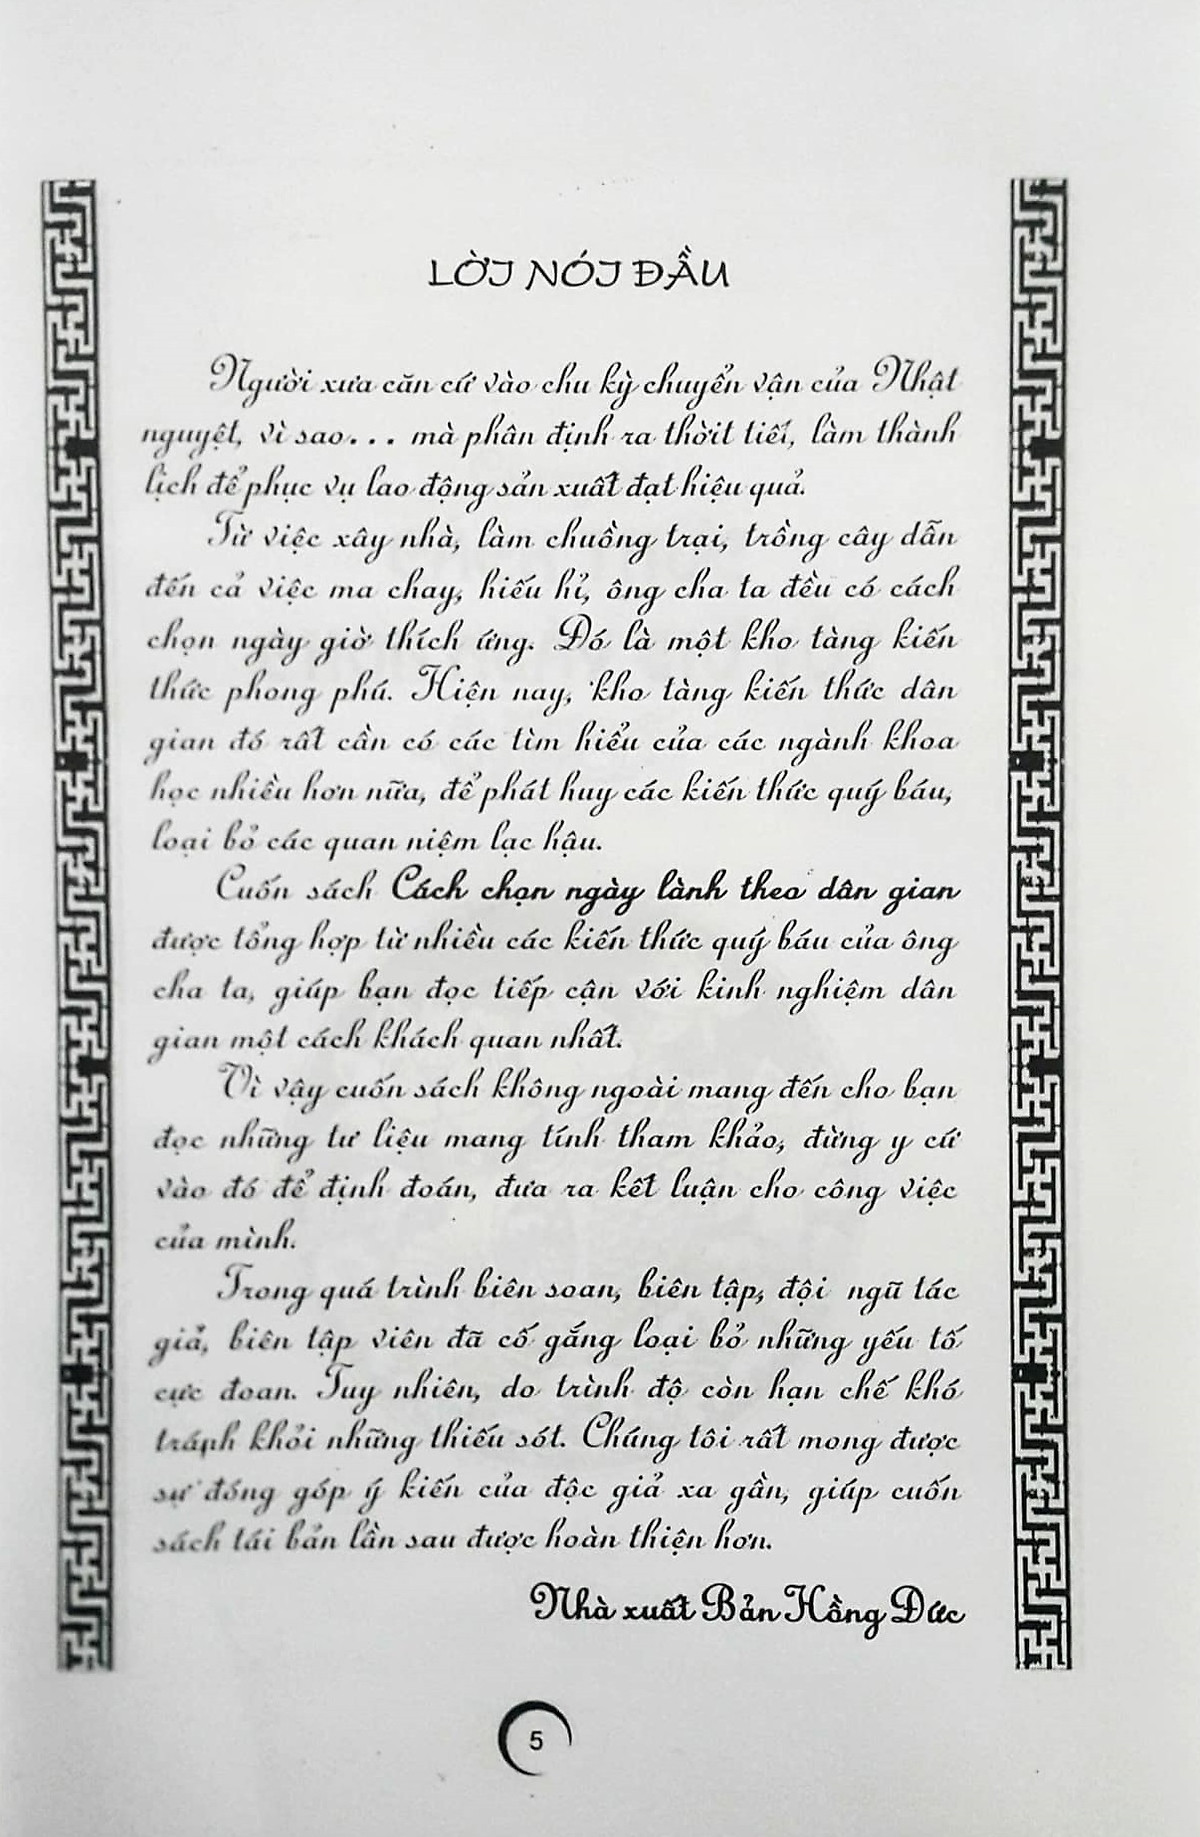 LỜI NÓI ĐẦU
Người xưa căn cứ vào chu kỳ chuyển vận của Nhật
nguyệt, vì sao... mà phân định ra thờit tiết, làm thành
lịch để phục vụ lao động sản xuất đạt hiệu quả.
Từ việc xây nhà, làm chuồng trại, trồng cây dẫn
đến cả việc ma chay, hiếu hỉ, ông cha ta đều có cách
chọn ngày giờ thích ứng. Đó là một kho tàng kiến
thức phong phú. Hiện nay, kho tàng kiến thức dân
gian đó rất cần có các tìm hiểu của các ngành khoa
học nhiều hơn nữa, để phát huy các kiến thức quý báu,
loại bỏ các quan niệm lạc hậu.
Cuốn sách Cách chọn ngày lành theo dân gian
được tổng hợp từ nhiều các kiến thức quý báu của ông
cha ta, giúp bạn đọc tiếp cận với kinh nghiệm dân
gian một cách khách quan nhất.
Vì vậy cuốn sách không ngoài mang đến cho bạn
đọc những tư liệu mang tính tham khảo, đừng y cứ
vào đó để định đoán, đưa ra kết luận cho công việc
của mình.
Trong quá trình biên soan, biên tập, đội ngũ tác
giả, biên tập viên đã cố gắng loại bỏ những yếu tố
cực đoan. Tuy nhiên, do trình độ còn hạn chế khó
tránh khỏi những thiếu sót. Chúng tôi rất mong được
sự đóng góp ý kiến của độc giả xa gần, giúp cuốn
sách tái bản lần sau được hoàn thiện hơn.
Nhà xuất Bản Hồng Đức
5